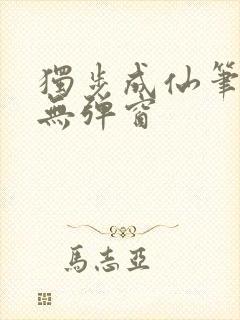 獨步成仙筆
無彈窗
馬志亞